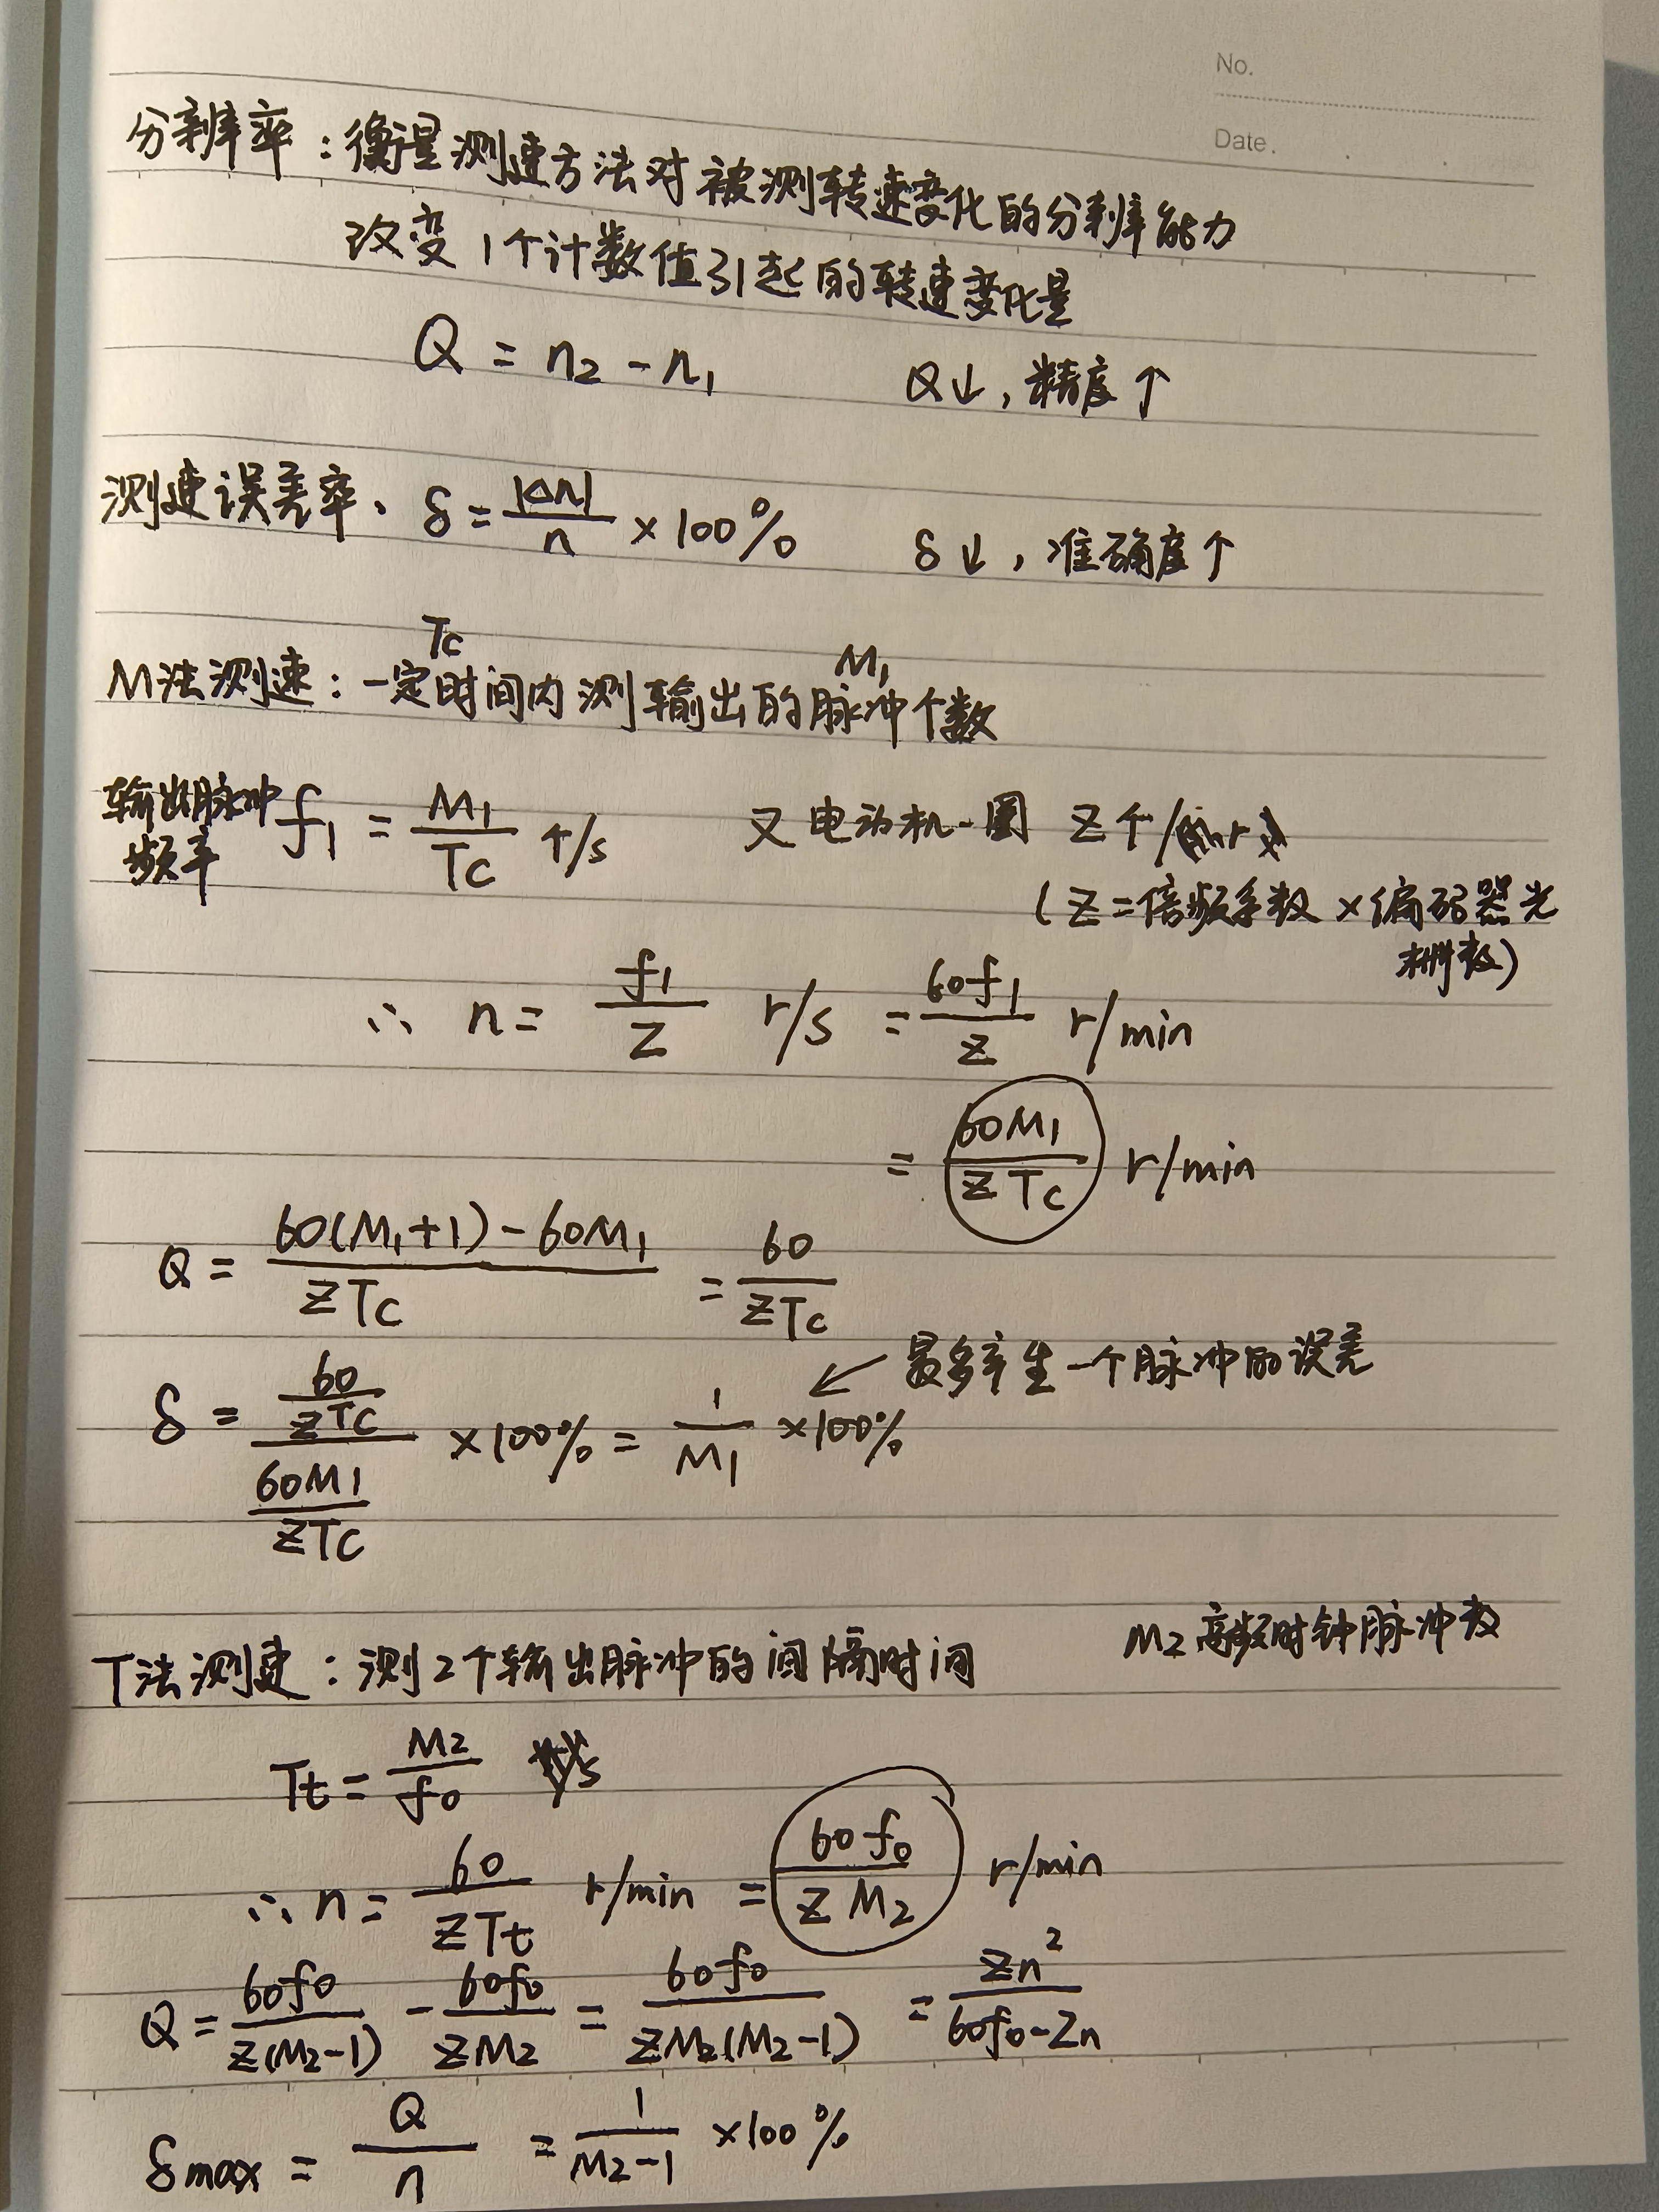 No.
Date.
分辨率：衡量测速方法对被测转速变化的分辨率能力
改变1个计数值引起的转速变化量
Q = n₂ - n₁ Q↓, 精度↑
测速误差率、 δ = |Δn| / n × 100% δ↓, 准确度↑
Tc M₁
M法测速：一定时间内测输出的脉冲个数
输出脉冲频率 f₁ = M₁ / Tc 个/s 又电动机一圈 Z个/
(Z = 倍频系数 × 编码器光
栅数)
∴ n = f₁ / Z r/s = 60f₁ / Z r/min
= 60M₁ / ZTc r/min
Q = (60(M₁+1) - 60M₁) / ZTc = 60 / ZTc
← 最多产生一个脉冲的误差
δ = (60 / ZTc) / (60M₁ / ZTc) × 100% = 1 / M₁ × 100%
M₂ 高频时钟脉冲数
T法测速：测2个输出脉冲的间隔时间
Tt = M₂ / f₀ s
∴ n = 60 / ZTt r/min = 60f₀ / ZM₂ r/min
Q = 60f₀ / Z(M₂-1) - 60f₀ / ZM₂ = 60f₀ / ZM₂(M₂-1) = Zn² / (60f₀-Zn)
δmax = Q / n = 1 / (M₂-1) × 100%